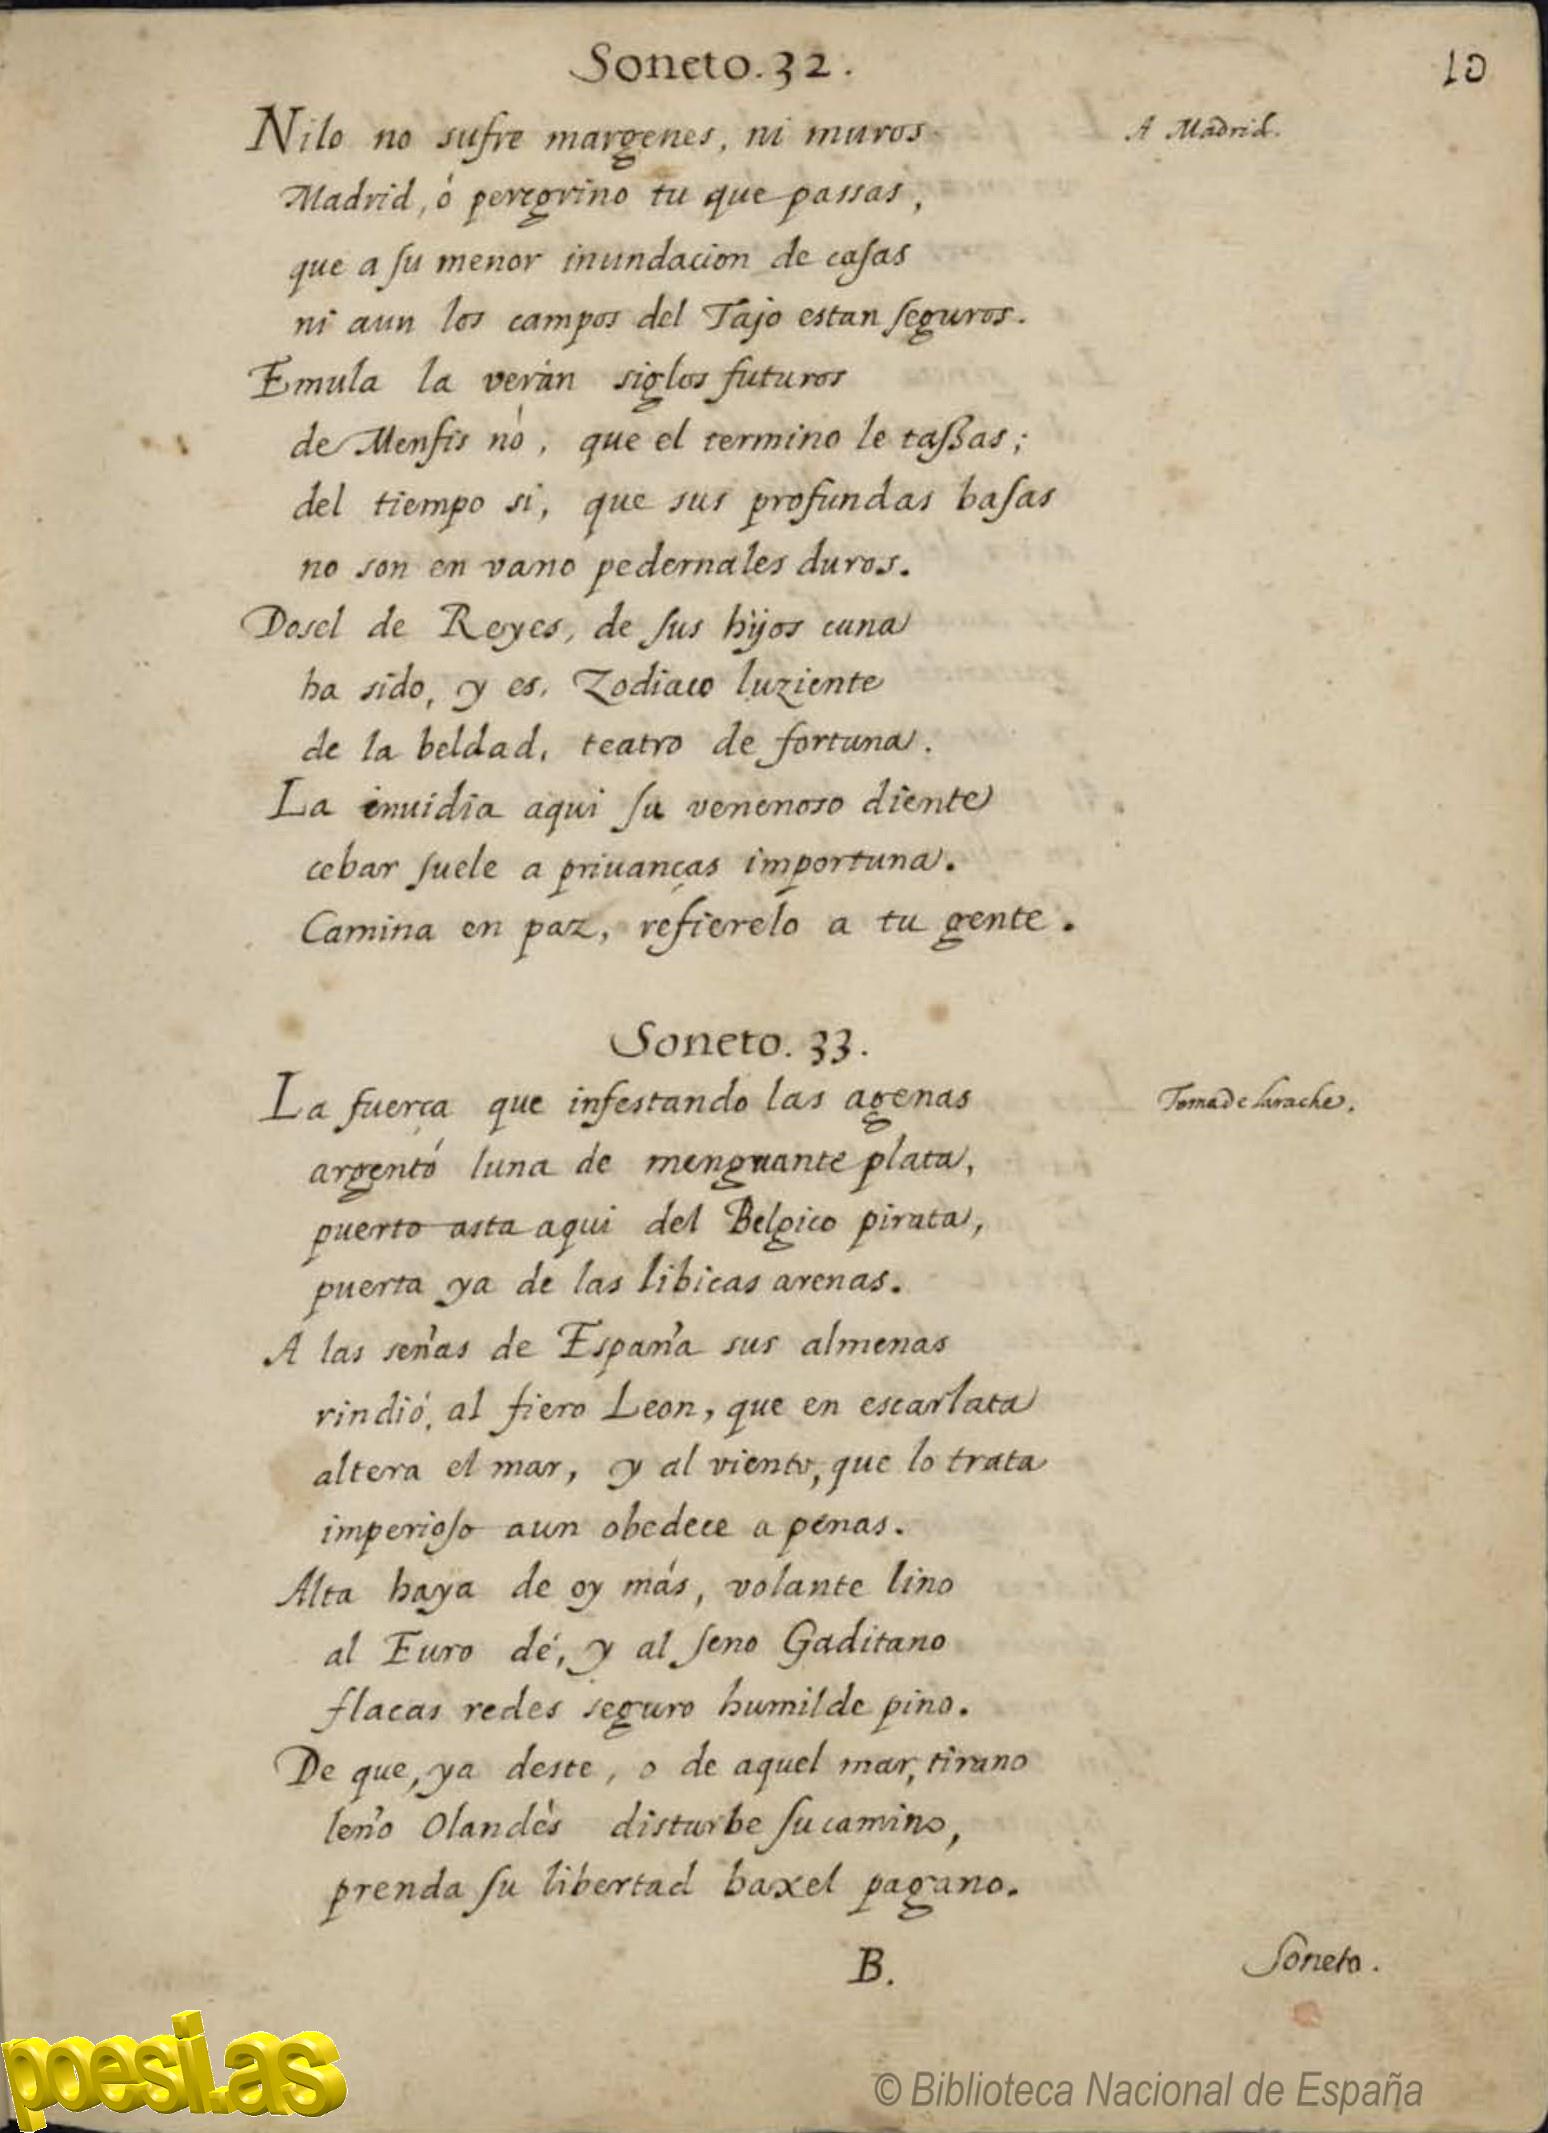 Soneto. 32.
10
Nilo no sufre margenes, ni muros
A Madrid.
Madrid, ó peregrino tu que passas,
que a su menor inundacion de casas
ni aun los campos del Tajo estan seguros.
Emula la verán siglos futuros
de Menfis nó, que el termino le tassas;
del tiempo si, que sus profundas basas
no son en vano pedernales duros.
Dosel de Reyes, de sus hijos cuna
ha sido, y es, Zodiaco luziente
de la beldad, teatro de fortuna.
La inuidia aqui su venenoso diente
cebar suele a priuanças importuna.
Camina en paz, refierelo a tu gente.
Soneto. 33.
La fuerça que infestando las agenas
Toma de Larache.
argentó luna de menguante plata,
puerto asta aqui del Belgico pirata,
puerta ya de las libicas arenas.
A las señas de España sus almenas
rindió, al fiero Leon, que en escarlata
altera el mar, y al viento, que lo trata
imperioso aun obedece apenas.
Alta haya de oy más, volante lino
al Euro dé, y al seno Gaditano
flacas redes seguro humilde pino.
De que, ya deste, o de aquel mar, tirano
leño Olandés disturbe su camino,
prenda su libertad baxel pagano.
B.
Soneto.
poesi.as
© Biblioteca Nacional de España